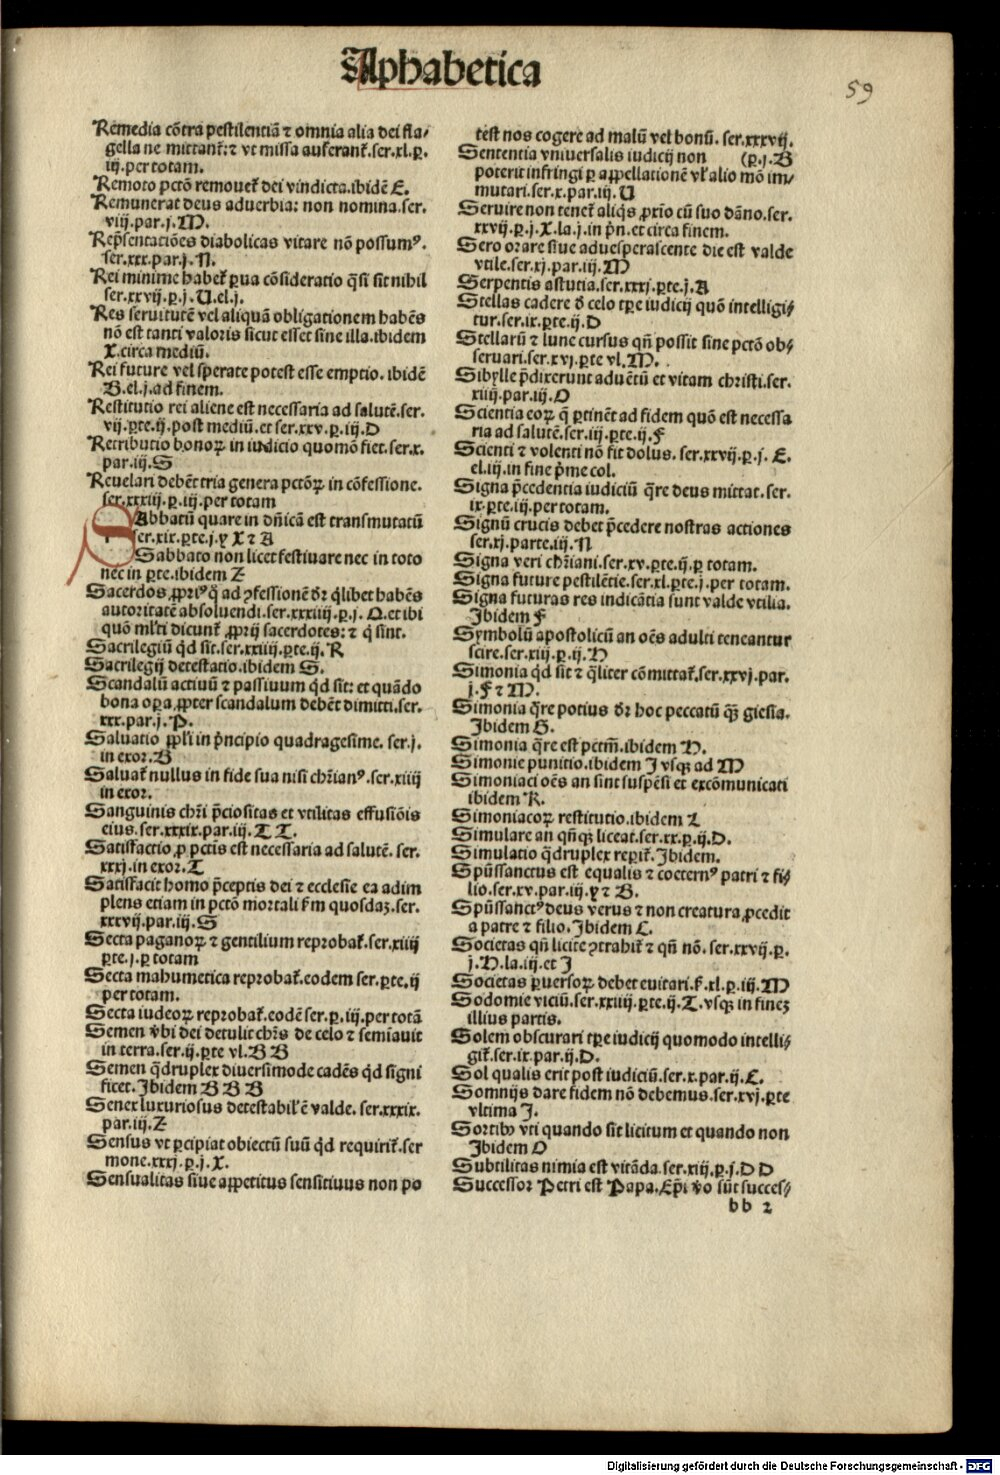 Alphabetica
59
Remedia cõtra pestilentiã ⁊ omnia alia dei fla/
gella ne mittant᷑:⁊ vt missa auferant᷑.ser.xl.p.
iij.per totam.
Remoto pctõ remouet᷑ dei vindicta.ibidẽ E.
Remunerat deus aduerbia: non nomina.ser.
viij.par.j.M.
Rep̃sentatiões diabolicas vitare nõ possumꝰ.
ser.xxx.par.j.N.
Rei minime habet᷑ ꝑua cõsideratio q̃si sit nihil
ser.xxvij.p.j.V.el.j.
Res seruitutẽ vel aliquã obligationem habẽs
nõ est tanti valoris sicut esset sine illa.ibidem
X.circa mediũ.
Rei future vel sperate potest esse emptio.ibidẽ
B.el.j.ad finem.
Restitutio rei aliene est necessaria ad salutẽ.ser.
vij.ꝑte.ij.post mediũ.et ser.xxv.p.iij.D
Retributio bonoꝝ in iudicio quomõ fiet.ser.x.
par.iij.S
Reuelari debẽt tria genera pctõꝝ in cõfessione.
ser.xxxiij.p.iij.per totam
SAbbatũ quare in dñicã est transmutatũ
ser.xix.ꝑte.j.y X ⁊ A
Sabbato non licet festiuare nec in toto
nec in ꝑte.ibidem Z
Sacerdos ꝓpriꝰ q̃ ad ꝯfessionẽ dr̃ q̃libet habẽs
autoritatẽ absoluendi.ser.xxxiiij.p.j.Q.et ibi
quõ ml̃ti dicunt᷑ ꝓprij sacerdotes:⁊ q̃ sint.
Sacrilegiũ qd̃ sit.ser.xxiiij.ꝑte.ij.R
Sacrilegij detestatio.ibidem S.
Scandalũ actiuũ ⁊ passiuum qd̃ sit: et quãdo
bona oꝑa ꝓpter scandalum debẽt dimitti.ser.
xxx.par.j.P.
Saluatio ppl̃i in p̃ncipio quadragesime. ser.j.
in exor.B
Saluat᷑ nullus in fide sua nisi chr̃ianꝰ.ser.xiiij
in exor.
Sanguinis chr̃i p̃ciositas et vtilitas effusiõis
eius.ser.xxxix.par.iij.T T.
Satisfactio ꝓ pctis est necessaria ad salutẽ. ser.
xxxj.in exor.T
Satisfacit homo p̃ceptis dei ⁊ ecclesie ea adim
plens etiam in pctõ mortali ẜm quosdaꝫ.ser.
xxxvij.par.iij.S
Secta paganoꝝ ⁊ gentilium reprobat᷑.ser.xiiij
ꝑte.j.ꝑ totam
Secta mahumetica reprobat᷑.eodem ser.ꝑte.ij
per totam.
Secta iudeoꝝ reprobat᷑.eodẽ ser.p.iij.per totã
Semen v̾bi dei detulit chr̃s de celo ⁊ semiauit
in terra.ser.ij.ꝑte vl.B B
Semen q̃druplex diuersimode cadẽs qd̃ signi
ficet.Ibidem B B B
Senex luxuriosus detestabil'ẽ valde. ser.xxxix.
par.iij.Z
Sensus vt ꝑcipiat obiectũ suũ qd̃ requirit᷑.ser
mone.xxxj.p.j.X.
Sensualitas siue appetitus sensitiuus non po
test nos cogere ad malũ vel bonũ. ser.xxxvij.
Sententia vniuersalis iudicij non (p.j.B
poterit infringi ꝑ appellationẽ vl̃ alio mõ im/
mutari.ser.x.par.iij.V
Seruire non tenet᷑ aliq̃s ꝓxĩo cũ suo dãno.ser.
xxvij.p.j.X.la.j.in p̃n.et circa finem.
Sero orare siue aduesperascente die est valde
vtile.ser.xj.par.iij.M
Serpentis astutia.ser.xxxj.ꝑte.j.A
Stellas cadere d̾ celo tp̃e iudicij quõ intelligi/
tur.ser.ix.ꝑte.ij.D
Stellarũ ⁊ lune cursus qñ possit sine pctõ ob/
seruari.ser.xvj.ꝑte vl.M.
Sibylle p̃dixerunt aduẽtũ et vitam christi.ser.
xiiij.par.iij.O
Scientia eoꝝ q̃ ꝑtinẽt ad fidem quõ est necessa
ria ad salutẽ.ser.iij.ꝑte.ij.F
Scienti ⁊ volenti nõ fit dolus. ser.xxvij.p.j. E.
el.iij.in fine p̃me col.
Signa p̃cedentia iudiciũ q̃re deus mittat.ser.
ix.ꝑte.iij.per totam.
Signũ crucis debet p̃cedere nostras actiones
ser.xj.parte.iij.N
Signa veri chr̃iani.ser.xv.ꝑte.ij.ꝑ totam.
Signa future pestilẽtie.ser.xl.ꝑte.j.per totam.
Signa futuras res indicãtia sunt valde vtilia.
Ibidem F
Symbolũ apostolicũ an oẽs adulti teneantur
scire.ser.xiij.p.ij.H
Simonia qd̃ sit ⁊ q̃liter cõmittat᷑.ser.xxvj.par.
j.F ⁊ M.
Simonia q̃re potius dr̃ hoc peccatũ q̃ꝫ giesia.
Ibidem G.
Simonia q̃re est pctm̃.ibidem H.
Simonie punitio.ibidem I vsqꝫ ad M
Simoniaci oẽs an sint suspẽsi et excõmunicati
ibidem K.
Simoniacoꝝ restitutio.ibidem L
Simulare an qñqꝫ liceat.ser.xx.p.ij.D.
Simulatio q̃druplex reperit᷑.Ibidem.
Spũssanctus est equalis ⁊ coeternꝰ patri ⁊ fi/
lio.ser.xv.par.iij.y ⁊ B.
Spũssanctꝰ deus verus ⁊ non creatura ꝓcedit
a patre ⁊ filio.Ibidem C.
Societas qñ licite ꝯtrahit᷑ ⁊ qñ nõ. ser.xxvij.p.
j.H.la.iij.et I
Societas ꝑuersoꝝ debet euitari.ẜ.xl.p.iij.M
Sodomie viciũ.ser.xxiiij.ꝑte.ij.T.vsqꝫ in fineꝫ
illius partis.
Solem obscurari tp̃e iudicij quomodo intelli/
git᷑.ser.ix.par.ij.D.
Sol qualis erit post iudiciũ.ser.x.par.ij.C.
Somnijs dare fidem nõ debemus.ser.xvj.ꝑte
vltima I.
Sortibꝰ vti quando sit licitum et quando non
Ibidem O
Subtilitas nimia est vitãda.ser.xiij.p.j.D D
Successor Petri est Papa.Ep̃i v̾o sũt succes/
bb 2
Digitalisierung gefördert durch die Deutsche Forschungsgemeinschaft - DFG